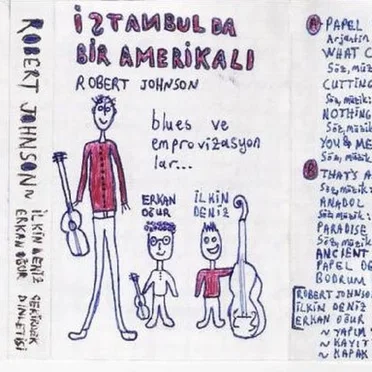 ROBERT JOHNSON ~ İLKİN DENİZ
ERKAN OĞUR
DİNLETİSİ
İSTANBUL DA
BİR AMERİKALI
ROBERT JOHNSON
blues ve
emprovizasyon
lar...
ERKAN
OĞUR
İLKİN
DENİZ
A PAPEL
Arjantin
WHAT C
Söz, müz
CUTTING
Söz, müzik:
NOTHING
Söz, müzik
YOU & ME
Söz, müzik:
B THAT'S A
Söz, müzik:
ANADOL
Söz, müzik:
PARADISE
Söz, müzik
ANCIENT
PAPEL DE
BODRUM
ROBERT JOHNSO
İLKİN DENİZ
ERKAN OĞUR
~ YAPIM
~ KAYIT
~ KAPAK